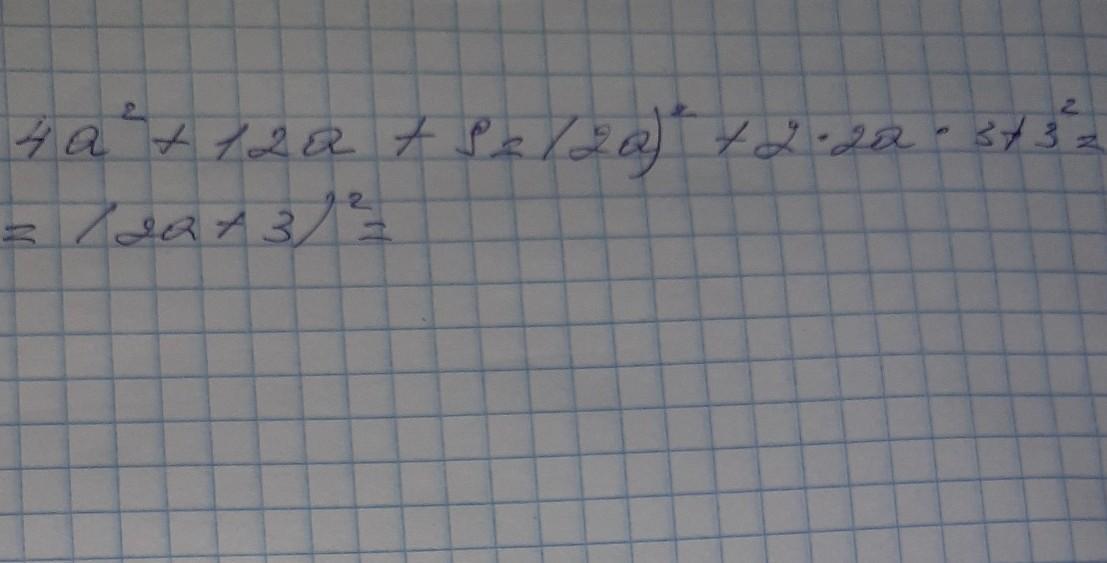 4a² + 12a + 9 = (2a)² + 2·2a·3 + 3² =
= (2a + 3)² =